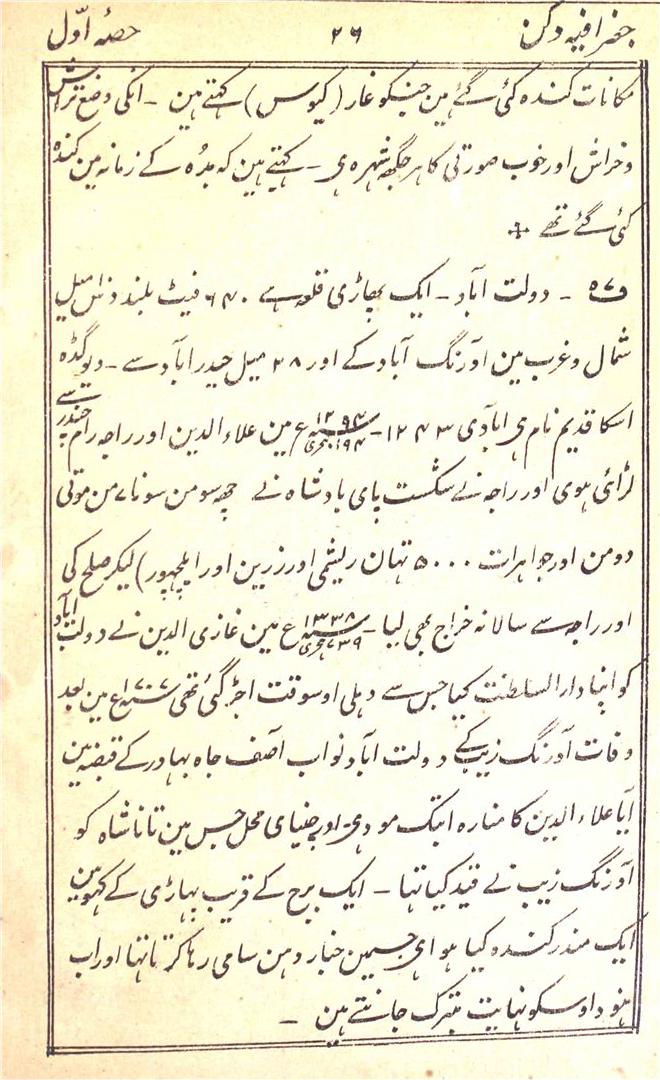 جغرافیہ دکن ۲۶ حصۂ اوّل
مکانات کندہ کئی گئے ہین جنکو غار (کیوس) کہتے ہین - انکی وضع تراش
وخراش اور خوب صورتی کا ہر جگھہ شہرہ ہی - کہتے ہین کہ بدُہ کے زمانہ مین کندہ
کئی گئے تھے
دولت اباد - ایک پھاڑی قلعہ ہے ۶۴۰ فیٹ بلند دس میل
شمال وغرب مین اَورنگ اَباد کے اور ۲۸ میل حیدراَباد سے - دیوگڈہ
اسکا قدیم نام ہی اباَدی ۱۲۴۳ - سنہ ۱۲۹۴ ع ۶۹۴ ہجری مین علاء الدین اور راجہ رام چندر سے
لڑائی ہوی اور راجہ نے شکست پای بادشاہ نے چھہ سو من سونا ۷ من موتی
دو من اور جواہرات ۵۰۰۰ تہان ریشمی اور زرین اور ایلچپور) لیکر صلح کی
اور راجہ سے سالانہ خراج بھی لیا - سنہ ۱۳۳۸ ع ۷۳۹ ہجری مین غازی الدین نے دولت اَباد
کو اپنا دار السلطنت کیا جس سے دہلی اوسوقت اجڑ گئی تھی سنہ ۱۷۰۷ ع مین بعد
وفات اَورنگ زیب کے دولت اَباد نواب اَصف جاہ بہادر کے قبضہ مین
اَیا علاء الدین کا منارہ ابتک موجود ہی اور چنیای محل جس مین تانا شاہ کو
اَورنگ زیب نے قید کیا تہا - ایک برج کے قریب پہاڑی کے کہوہ مین
ایک مندر کندہ کیا ہوا ہی جسمین جنار دہن سامی رہا کرتا تہا اور اب
ہنود اوسکو نہایت متبرک جانتے ہین -